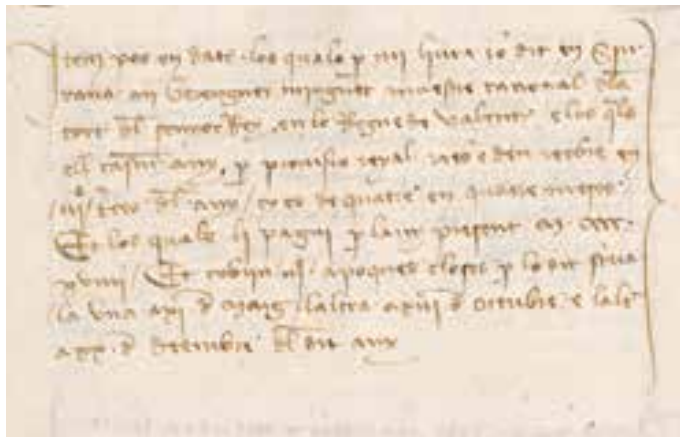 Item pos en data los quals p mi liura lo dit en Spir
rana an Berenguer Minguet maestre racional dla
cort dl senyor Rey en lo Regne de Valencia e los qls
ell cascun any p prouisio reyal reeb e deu reebre en
iij terçes dl any ço es de quatre en quatre meses
Et los quals li pagui p lany present M CCCC
xviiij Et cobrin iij apoques closes p lo dit
la vna a xi d Maig laltra a d Octubre e lalt
a xx d deembre dl dit any